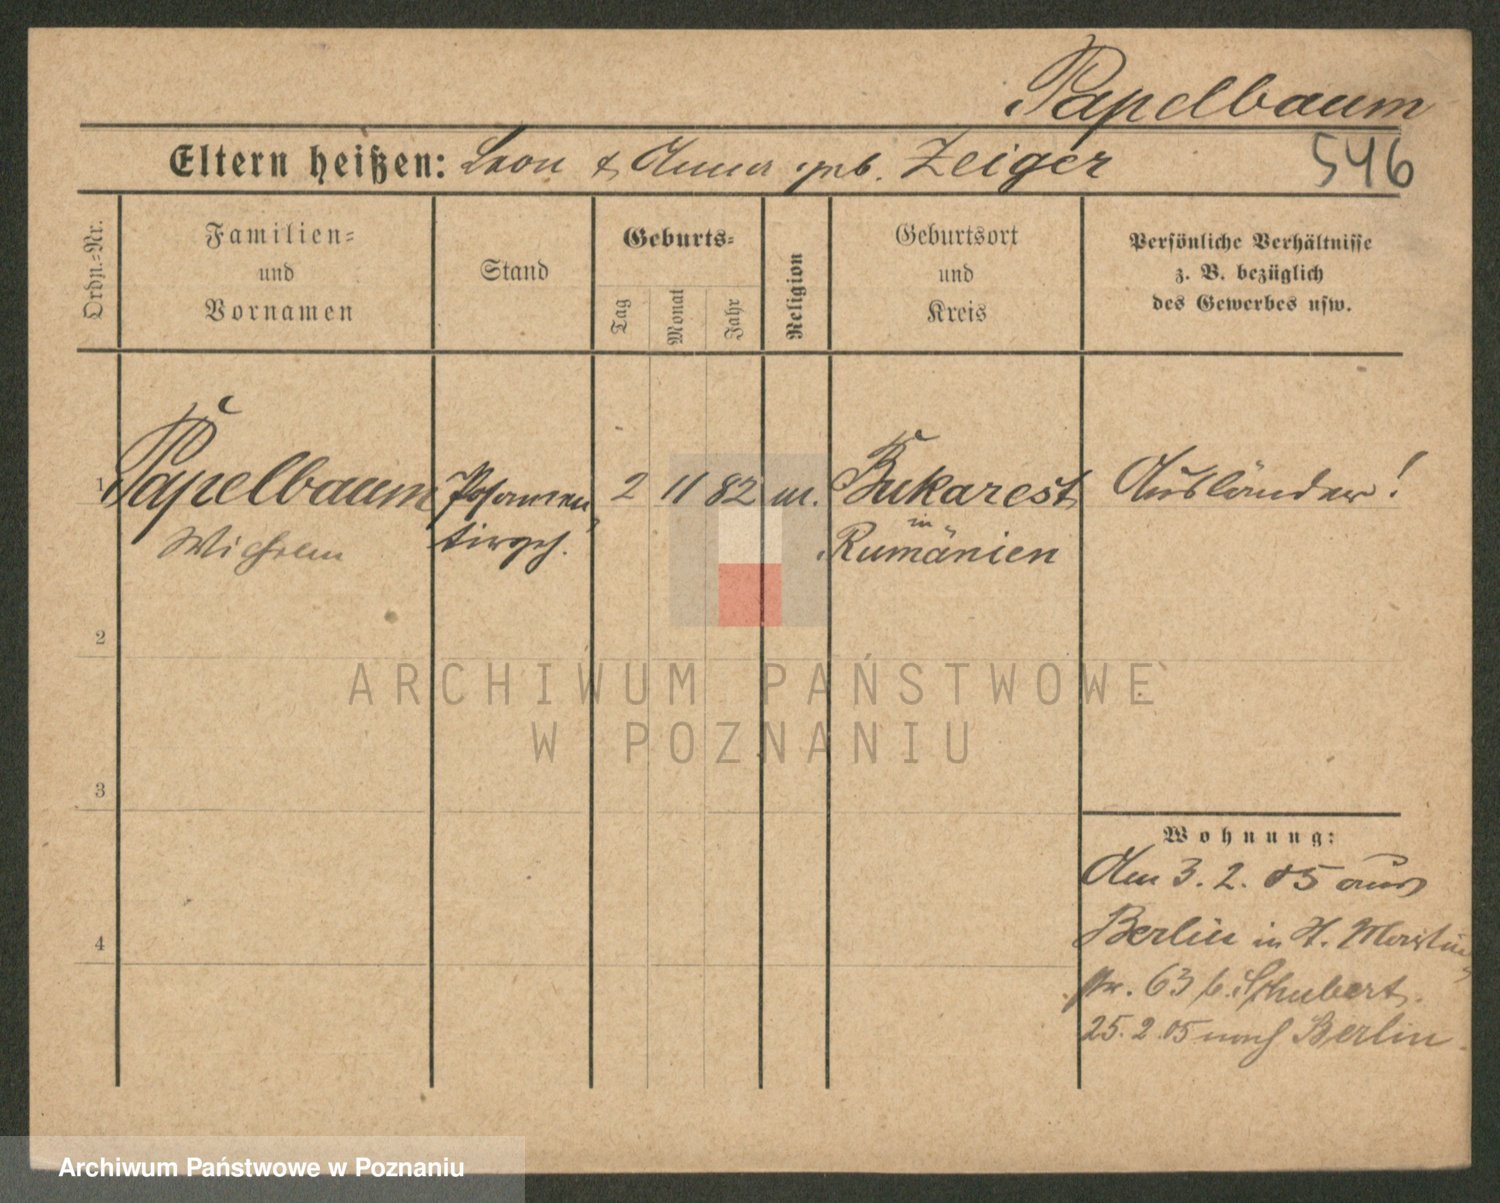 Papelbaum
546
Eltern heißen: Leon & Anna geb. Zeiger
Ordn.-Nr.
Familien-
und
Vornamen
Stand
Geburts-
Tag
Monat
Jahr
Religion
Geburtsort
und
Kreis
Persönliche Verhältnisse
z. B. bezüglich
des Gewerbes usw.
1 Papelbaum Posamen 2 11 82 m. Bukarest Ausländer!
Wilhelm tirgh. in
Rumänien
2
3
4
Wohnung:
Am 3. 2. 05 aus
Berlin in H. Martin
str. 63 b. Schubert.
25. 2. 05 nach Berlin.
ARCHIWUM PAŃSTWOWE
W POZNANIU
Archiwum Państwowe w Poznaniu